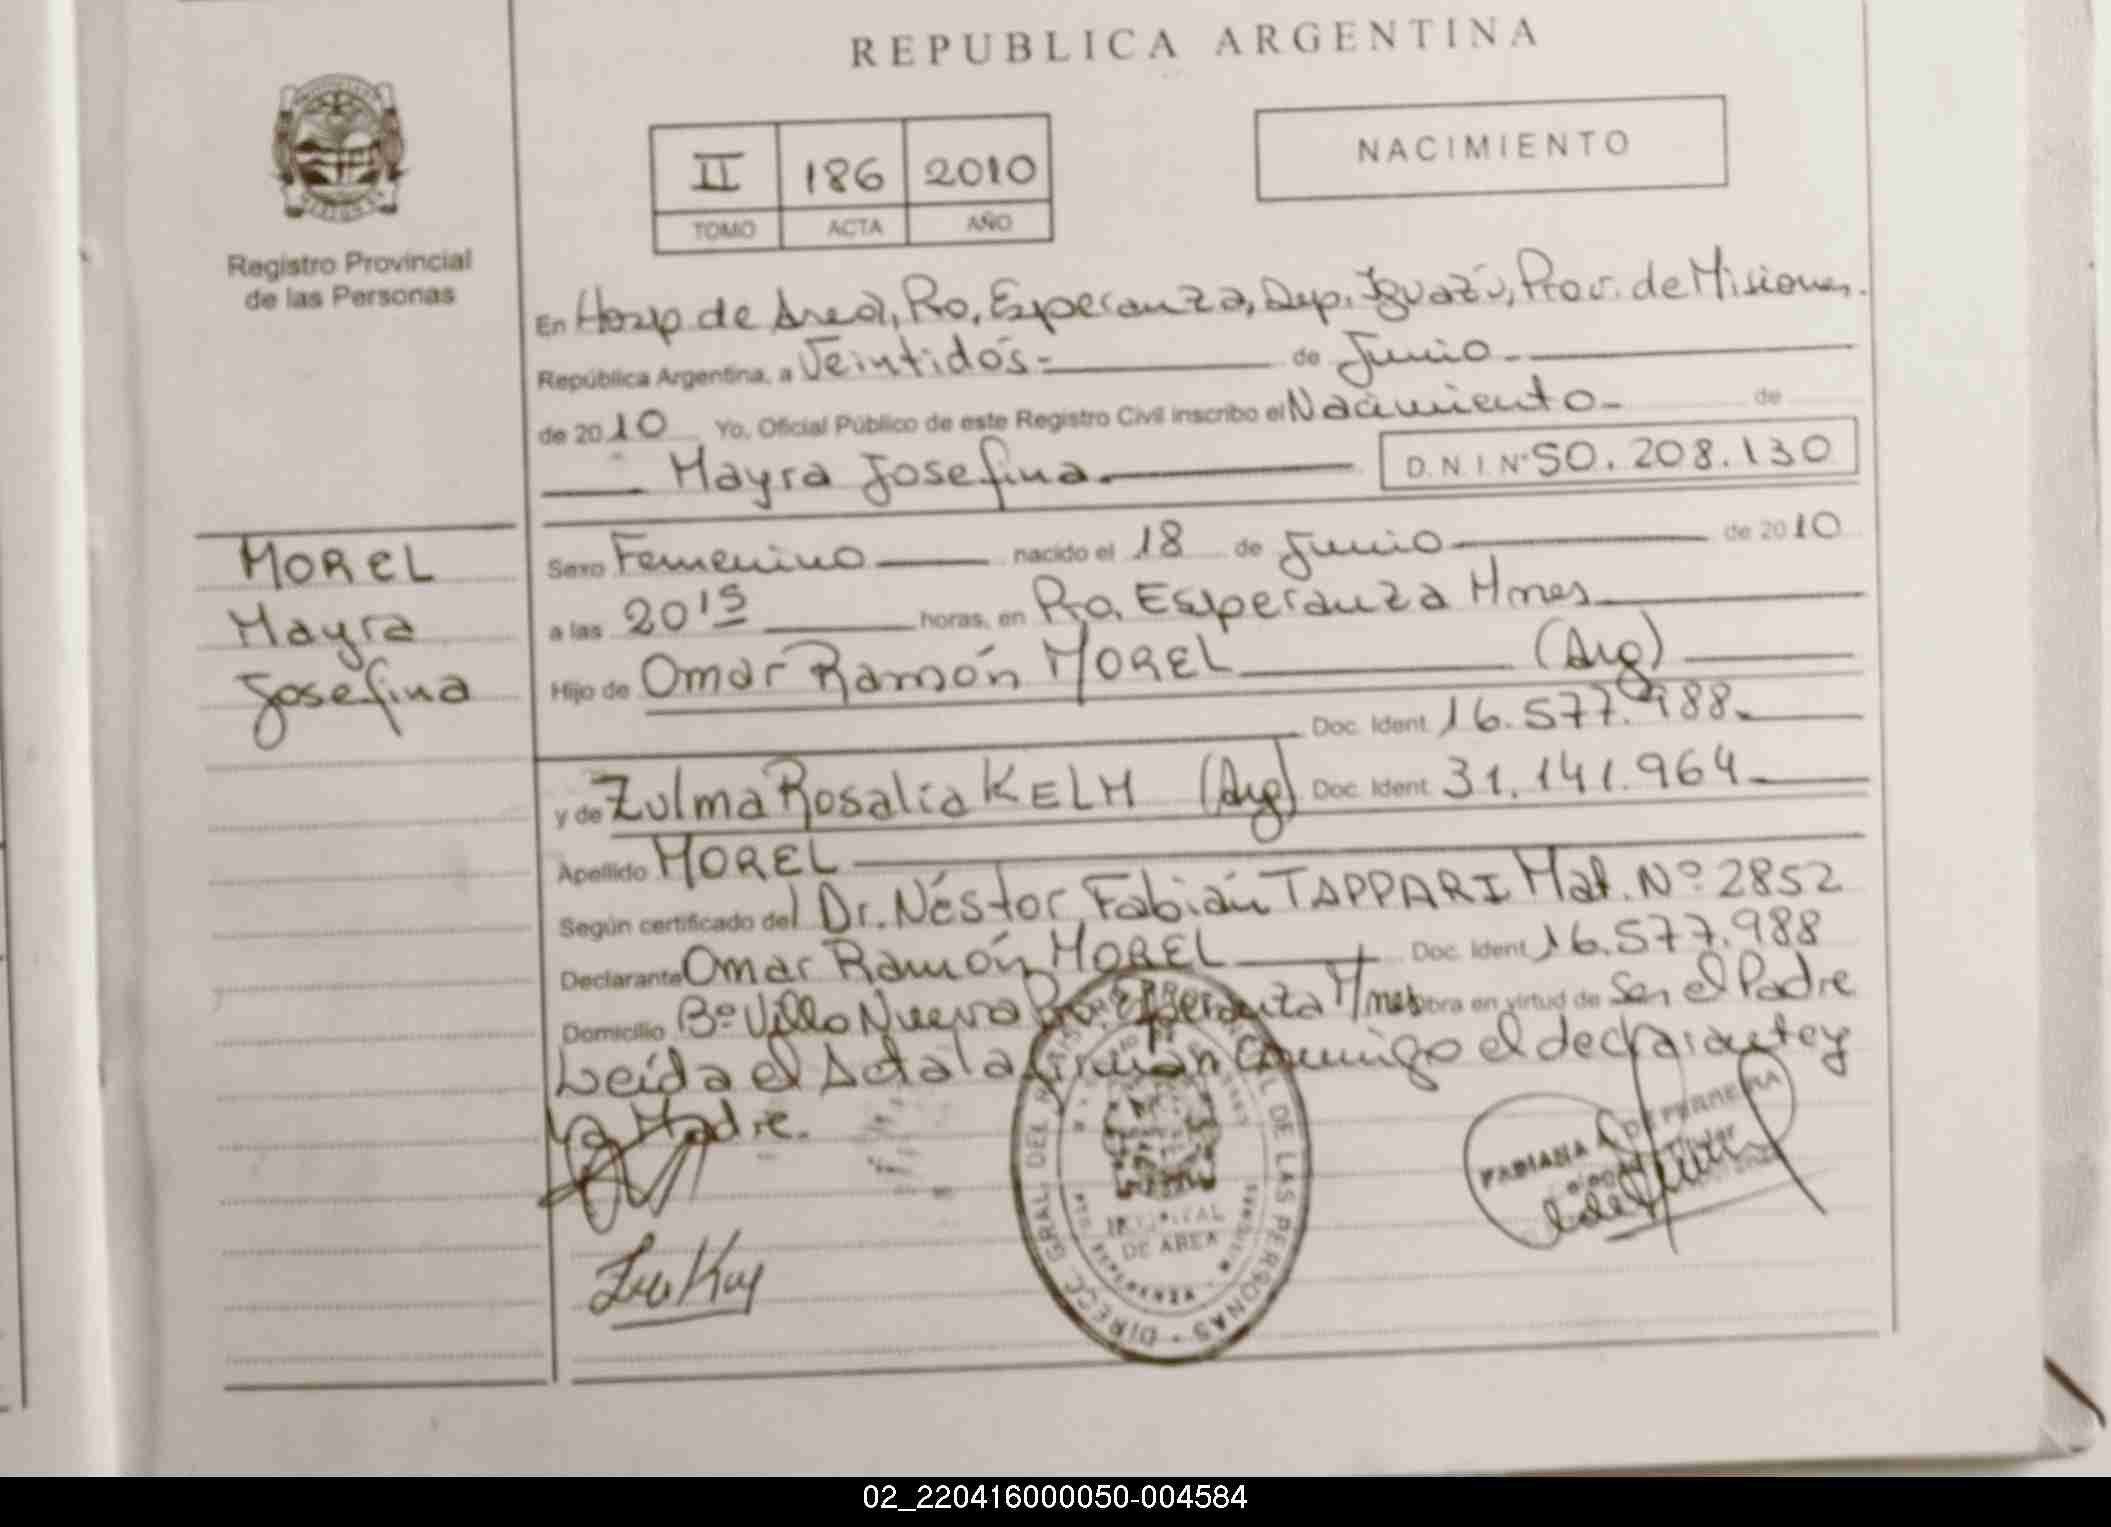 REPUBLICA ARGENTINA
II 186 2010
TOMO ACTA AÑO
NACIMIENTO
Registro Provincial
de las Personas
En Hosp de Area, Pto. Esperanza, Dep. Iguazú, Prov. de Misiones.
República Argentina, a Veintidós - de Junio
de 2010 Yo, Oficial Público de este Registro Civil inscribo el Nacimiento - de
Mayra Josefina. D.N.I. Nº 50.208.130
MOREL
Mayra
Josefina
Sexo Femenino nacido el 18 de Junio de 2010
a las 20 15 horas, en Pto. Esperanza Mnes
Hijo de Omar Ramón MOREL (Arg)
Doc. Ident. 16.577.988.
y de Zulma Rosalia KELM (Arg) Doc. Ident. 31.141.964
Apellido MOREL
Según certificado del Dr. Néstor Fabián TAPPARI Mat. Nº 2852
Declarante Omar Ramón MOREL Doc. Ident. 16.577.988
Domicilio Bº Villa Nueva Pto. Esperanza Mnes obra en virtud de ser el Padre
Leída el Acta la firman conmigo el declarante y
la Madre.
DIRECC. GRAL. DEL DE LAS PERSONAS
HOSPITAL
DE AREA
PTO. ESPERANZA
FABIANA DE FERREIRA
Titular
02_220416000050-004584